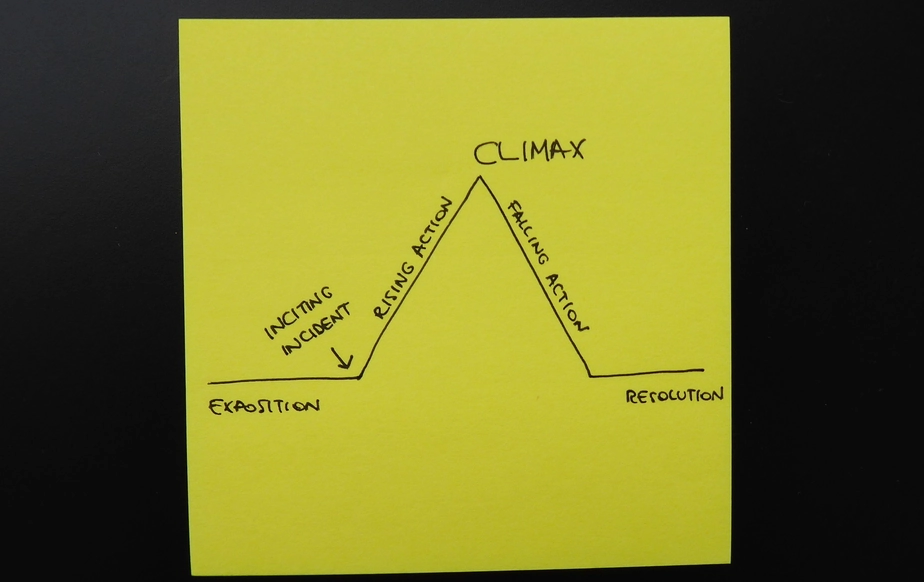 CLIMAX
RISING ACTION
FALLING ACTION
INCITING
INCIDENT
EXPOSITION
RESOLUTION